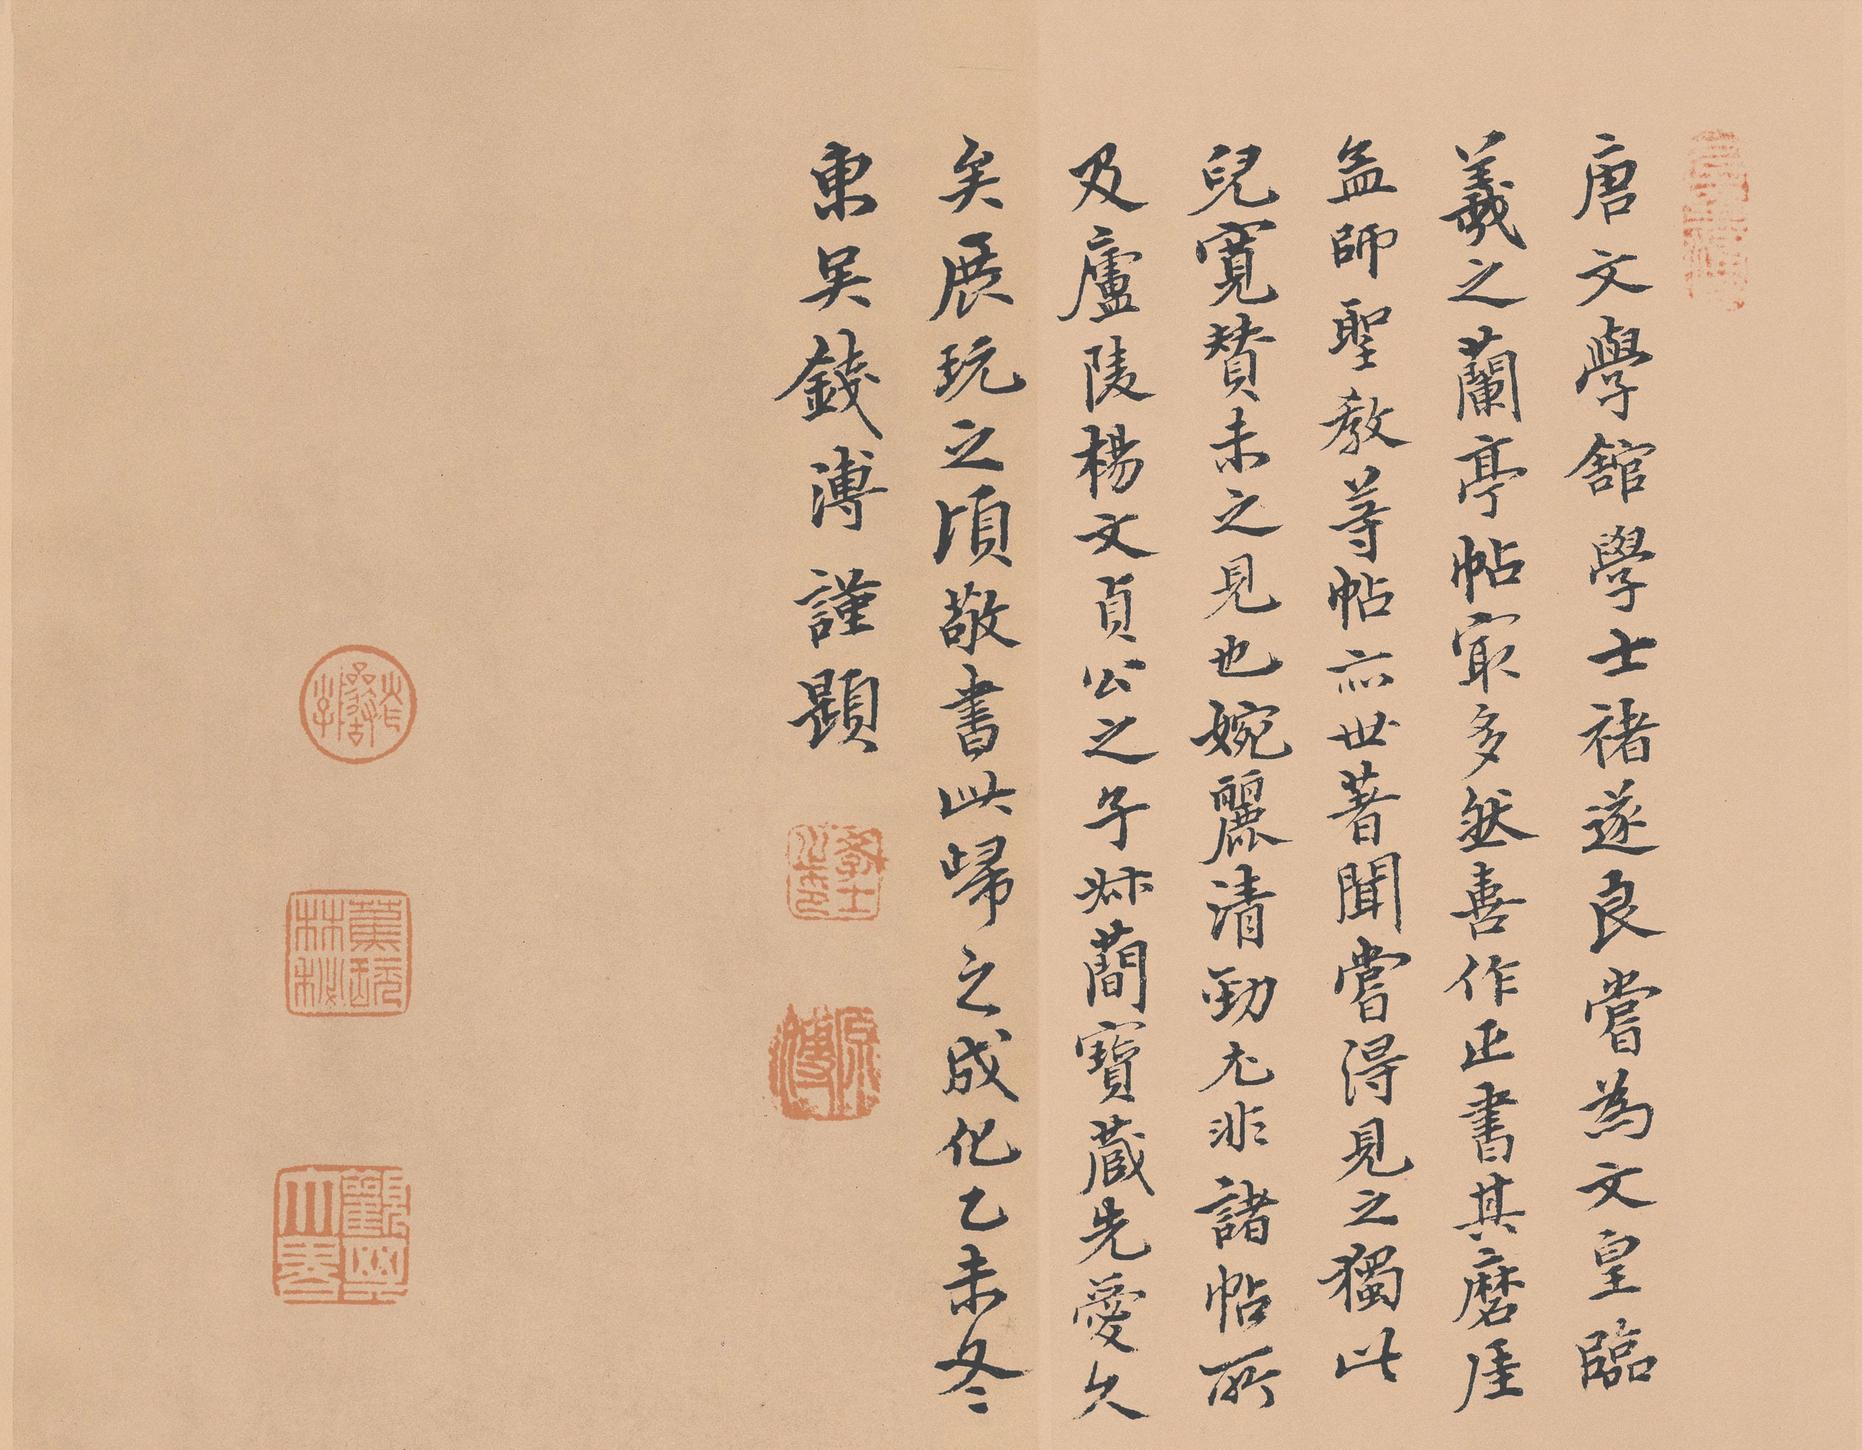 唐文學館學士褚遂良嘗為文皇臨
羲之蘭亭帖㝡多然喜作正書其磨厓
孟師聖教等帖亦世著聞嘗得見之獨此
兒寬贊未之見也婉麗清勁尤非諸帖所
及廬陵楊文貞公之子叔蕳寶藏先愛久
矣展玩之頃敬書此歸之成化乙未冬
東吳錢溥謹題
學士
原溥
蕉林